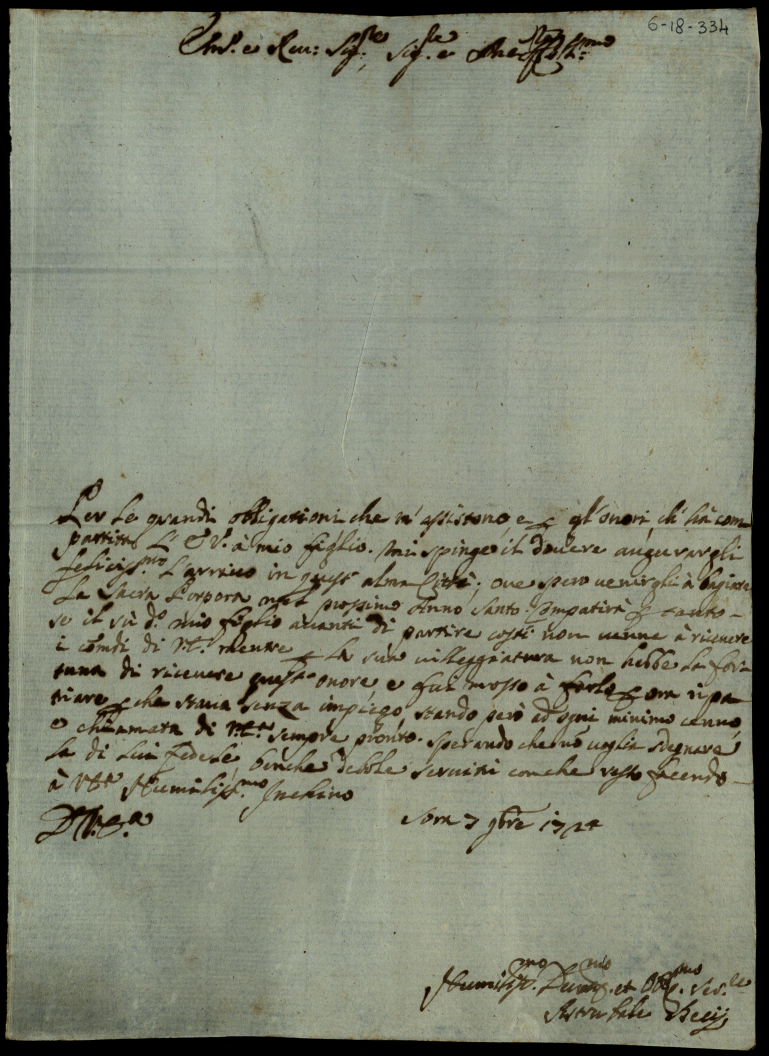 6-18-334
Ill.e e Reu: Sig.re Sig.re e
Per le grandi obligationi che m'assistono, e p gl'onori, ch'hà com-
partiti L'E.V. à mio figlio. Mi spinge il douere augurargli
feliciss.mo L'arriuo in quest'alma Città; oue spero uenirgli à bagiare
La Sacra Porpora nel prossimo Anno Santo. Compatirà p tanto-
se il sù d.o mio figlio auanti di partire costì non uenne à riceuere
i comdi di V.E. mentre p La sua uilleggiatura non hebbe La for-
tuna di riceuere quest'onore e fui mosso à farlo p ora ripa-
triare p che staua senza impiego, stando però ad ogni minimo cenno,
e chiamata di V.E. sempre pronto. Sperando che nõ uoglia sdegnare
La di Lui fedele, benche debole seruitù con che resto facendo-
à V.E. Humiliss.mo Inchino
D.V.E.a
Roma 7 9bre 1724
Humiliss.mo Deuot.mo et Obl.mo Ser.re